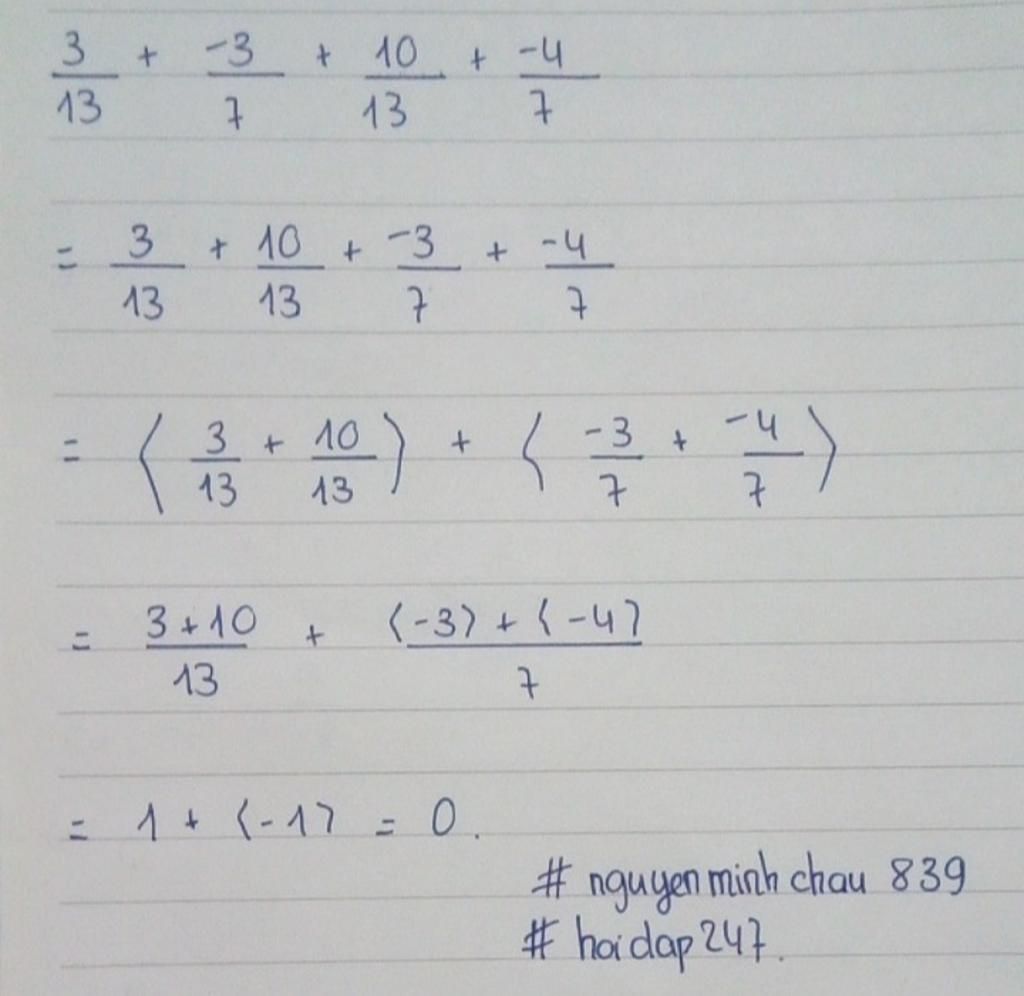 3/13 + -3/7 + 10/13 + -4/7
= 3/13 + 10/13 + -3/7 + -4/7
= (3/13 + 10/13) + (-3/7 + -4/7)
= 3+10/13 + (-3) + (-4)/7
= 1 + (-1) = 0.
# nguyenminhchau 839
# hoidap247.